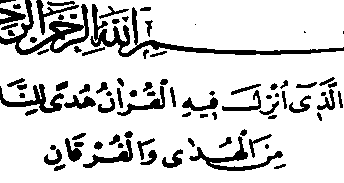 بِسْمِ اللهِ الرَّحْمٰنِ الرَّحِ
الَّذِىٓ اُنْزِلَ فِيهِ الْقُرْاٰنُ هُدًى لِلنَّا
مِنَ الْهُدٰى وَالْفُرْقَانِ